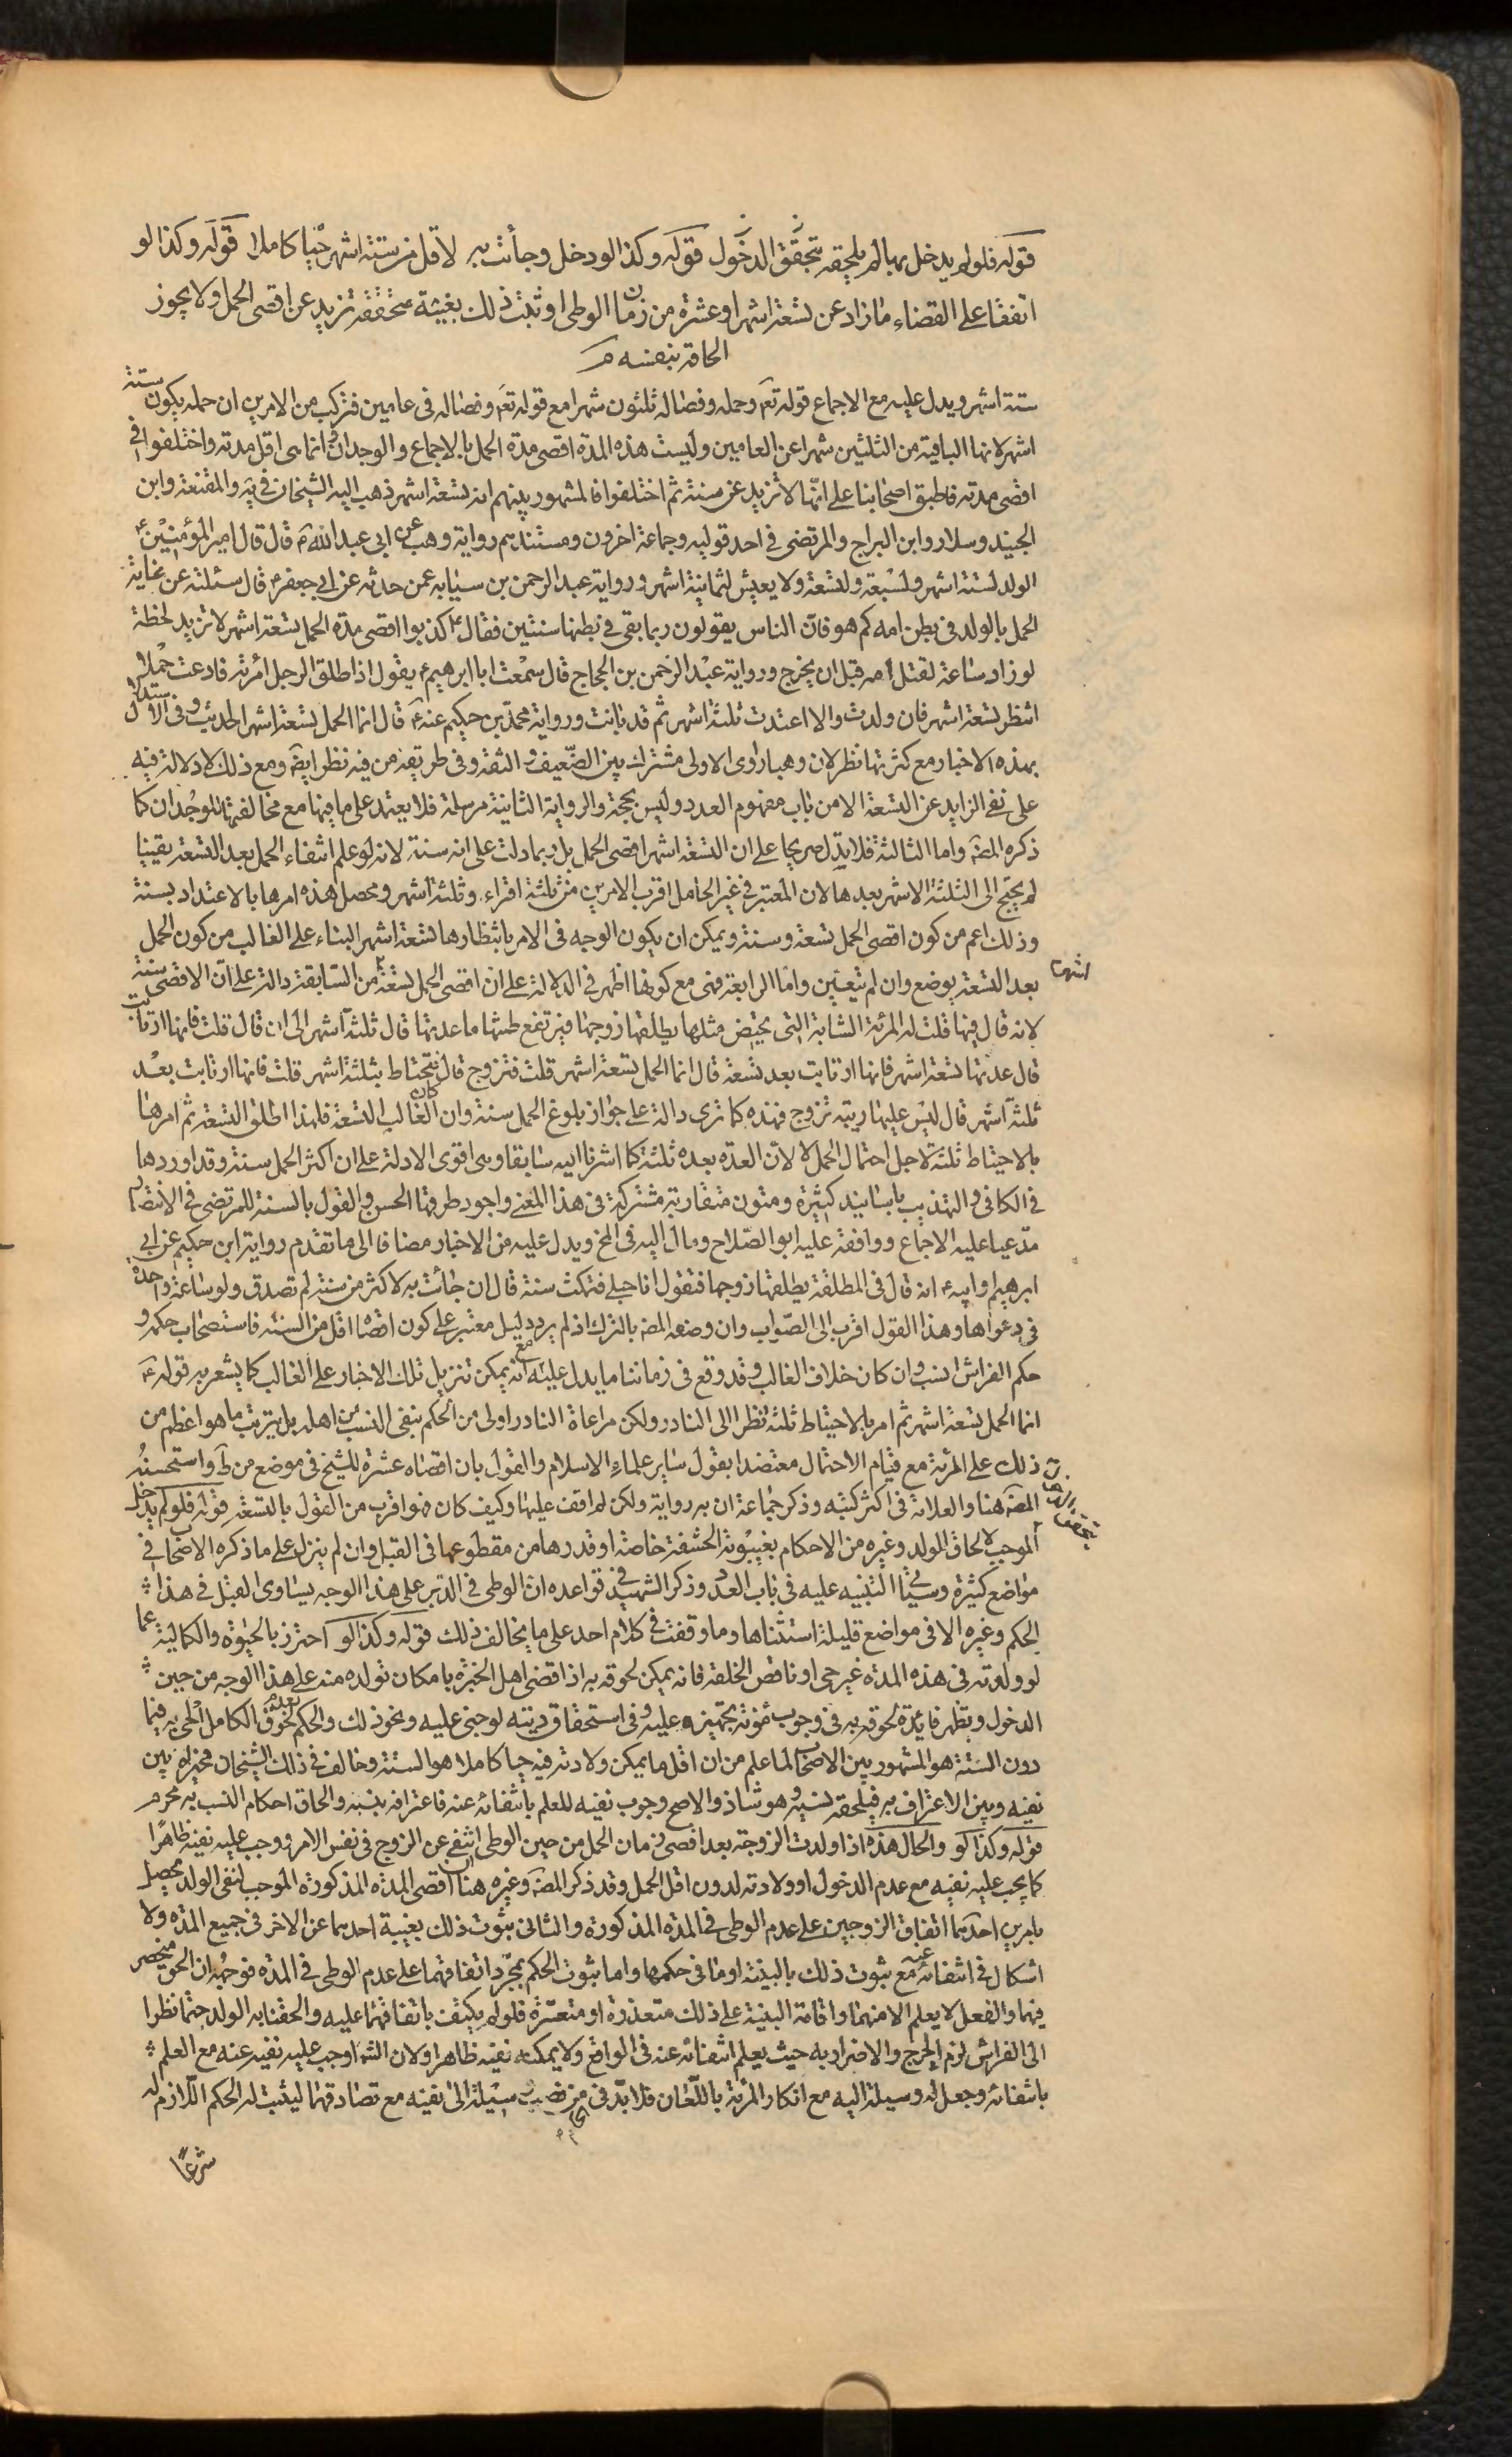 قوله فلو لم يدخل بها لم يلحقه يتحقق الدخول قوله وكذا لو دخل وجائت به لاقل من ستة اشهر حيا كاملا قوله وكذا لو
اتفقا على انقضاء ما زاد عن تسعة اشهر او عشرة من زمان الوطى او ثبت ذلك بغيبة متحققة تزيد عن اقصى الحمل ولا يجوز
الحاقه بنفسه م
ستة اشهر ويدل عليه مع الاجماع قوله تعم وحمله وفصاله ثلثون شهرا مع قوله تعم وفصاله فى عامين فتركب من الامرين ان حمله يكون ستة
اشهر لانها الباقية من الثلثين شهرا عن العامين وليست هذه المدة اقصى مدة الحمل بالاجماع والوجدان وانما هى اقل مدته واختلفوا فى
اقصى مدته فاطبق اصحابنا على انها لا تزيد عن سنة ثم اختلفوا فالمشهور بينهم انه تسعة اشهر ذهب اليه الشيخان فى يه والمقنعة وابن
الجنيد وسلار وابن البراج والمرتضى فى احد قوليه وجماعة اخرون ومستندهم رواية وهب عن ابى عبد الله م قال قال امير المؤمنين ع
الولد لستة اشهر ولسبعة ولتسعة ولا يعيش لثمانية اشهر ورواية عبد الرحمن بن سيابه عمن حدثه عن ابى جعفر م قال سئلته عن غاية
الحمل بالولد فى بطن امه كم هو فان الناس يقولون ربما بقى فى بطنها سنتين فقال ع كذبوا اقصى مدة الحمل تسعة اشهر لا تزيد لحظة
لو زاد ساعة لقتل امه قبل ان يخرج ورواية عبد الرحمن بن الحجاج قال سمعت ابا ابرهيم ع يقول اذا طلق الرجل امرئته فادعت حملا
انتظر تسعة اشهر فان ولدت والا اعتدت ثلثة اشهر ثم قد بانت ورواية محمد بن حكيم عنه ع قال انما الحمل تسعة اشهر الحديث وفى الاستدلال
بهذه الاخبار مع كثرتها نظر لان وهبا راوى الاولى مشترك بين الضعيف والثقة وفى طريقه من فيه نظر ايضا ومع ذلك لا دلالة فيه
على نفى الزايد عن التسعة الا من باب مفهوم العدد وليس بحجة والرواية الثانية مرسلة فلا يعتمد على ما فيها مع مخالفتها للوجدان كما
ذكره المص واما الثالثة فلا يدل صريحا على ان التسعة اشهر اقصى الحمل بل ربما دلت على انه سنة لانه لو علم انتفاء الحمل بعد التسعة يقينا
لم يحتج الى الثلثة الاشهر بعدها لان المعتبر فى غير الحامل اقرب الامرين من ثلثة اقراء وثلثة اشهر ومحصل هذه امرها بالاعتداد بسنة
وذلك اعم من كون اقصى الحمل تسعة وسنة ويمكن ان يكون الوجه فى الامر بانتظارها تسعة اشهر البناء على الغالب من كون الحمل
بعد التسعة يوضع وان لم تتعين واما الرابعة فهى مع كونها اظهر فى الدلالة على ان اقصى الحمل تسعة من السابقة دالة على ان الاقصى سنة
لانه قال فيها قلت له المرئة الشابة التى يحيض مثلها يطلقها زوجها فيرتفع طمثها ما عدتها قال ثلثة اشهر الى ان قال قلت فانها ارتابت
قال عدتها تسعة اشهر فانها ارتابت بعد تسعة قال انما الحمل تسعة اشهر قلت فتزوج قال تحتاط بثلثة اشهر قلت فانها ارتابت بعد
ثلثة اشهر قال ليس عليها ريبة تزوج فهذه كما ترى دالة على جواز بلوغ الحمل سنة وان كان الغالب التسعة فلهذا اطلق التسعة ثم امرها
بالاحتياط ثلثة لاجل احتمال الحمل لا لان العدة بعده ثلثة كما اشرنا اليه سابقا وهى اقوى الادلة على ان اكثر الحمل سنة وقد اوردها
فى الكافى والتهذيب باسانيد كثيرة ومتون متقاربة مشتركة فى هذا المعنى واجود طرقها الحسن والقول بالسنة للمرتضى فى الانتصار
مدعيا عليه الاجماع ووافقه عليه ابو الصلاح ومال اليه فى المخ ويدل عليه من الاخبار مضافا الى ما تقدم رواية ابن حكيم عن ابى
ابرهيم او ابيه ع انه قال فى المطلقة يطلقها زوجها فتقول انا حبلى فتمكث سنة قال ان جائت به لاكثر من سنة لم تصدق ولو ساعة واحدة
فى دعواها وهذا القول اقرب الى الصواب وان وصفه المص بالترك اذ لم يرد دليل معتبر على كون اقصاه اقل من السنة فاستصحاب حكمه و
حكم الفراش انسب وان كان خلاف الغالب وقد وقع فى زماننا ما يدل عليه مع انه يمكن تنزيل تلك الاخبار على الغالب كما يشعر به قوله ع
انما الحمل تسعة اشهر ثم امر بالاحتياط ثلثة نظرا الى النادر ولكن مراعاة النادر اولى من الحكم بنفى النسب عن اهله بل يترتب ما هو اعظم من
ذلك على المرئة مع قيام الاحتمال معتضدا بقول ساير علماء الاسلام والقول بان اقصاه عشرة للشيخ فى موضع من ط واستحسنه
المص هنا والعلامة فى اكثر كتبه وذكر جماعة ان به رواية ولكن لم اقف عليها وكيف كان فهو اقرب من القول بالتسعة قوله فلو لم يدخل
الموجب لالحاق الولد وغيره من الاحكام بغيبوبة الحشفة خاصة او قدرها من مقطوعها فى القبل وان لم ينزل على ما ذكره الاصحاب فى
مواضع كثيرة وسيأتى التنبيه عليه فى باب العدد وذكر الشهيد فى قواعده ان الوطى فى الدبر على هذا الوجه يساوى القبل فى هذا
الحكم وغيره الا فى مواضع قليلة استثناها وما وقفت فى كلام احد على ما يخالف ذلك قوله وكذا لو احترز بالحيوة والكمالية عما
لو ولدته فى هذه المدة غير حى او ناقص الخلقة فانه يمكن لحوقه به اذا قضى اهل الخبرة بامكان تولده منه على هذا الوجه من حين
الدخول وتظهر فايدة لحوقه به فى وجوب مؤنة تجهيزه عليه وفى استحقاق ديته لو جنى عليه ونحو ذلك والحكم بعدم لحوق الكامل الحى به فيما
دون الستة هو المشهور بين الاصحاب لما علم من ان اقل ما يمكن ولادته فيه حيا كاملا هو الستة وخالف فى ذلك الشيخان مخيراه بين
نفيه وبين الاعتراف به فيلحقه نسبه وهو شاذ والاصح وجوب نفيه للعلم بانتفائه عنه فاعترافه بنسبه والحاق احكام النسب به محرم
قوله وكذا لو والحال هذه اذا ولدت الزوجة بعد اقصى زمان الحمل من حين الوطى انتفى عن الزوج فى نفس الامر ووجب عليه نفيه ظاهرا
كما يجب عليه نفيه مع عدم الدخول او ولادته لدون اقل الحمل وقد ذكر المص وغيره هنا ان اقصى المدة المذكورة الموجب لنفى الولد يحصل
بامرين احدهما اتفاق الزوجين على عدم الوطى فى المدة المذكورة والثانى بثبوت ذلك بغيبة احدهما عن الاخر فى جميع المدة ولا
اشكال فى انتفائه عنه مع ثبوت ذلك بالبينة او ما فى حكمها واما ثبوت الحكم بمجرد اتفاقهما على عدم الوطى فى المدة فوجهه ان الحق منحصر
فيهما والفعل لا يعلم الا منهما واقامة البينة على ذلك متعذرة او متعسرة فلو لم يكتف باتفاقهما عليه والحقنا به الولد حتما نظرا
الى الفراش لزم الحرج والاضرار به حيث يعلم انتفائه عنه فى الواقع ولا يمكنه نفيه ظاهرا ولان الشه اوجب عليه نفيه عنه مع العلم
بانتفائه وجعل له وسيلة اليه مع انكار المرئة باللعان فلا بد فى من نصب وسيلة الى نفيه مع تصادقهما ليثبت له الحكم اللازم له
شرعا